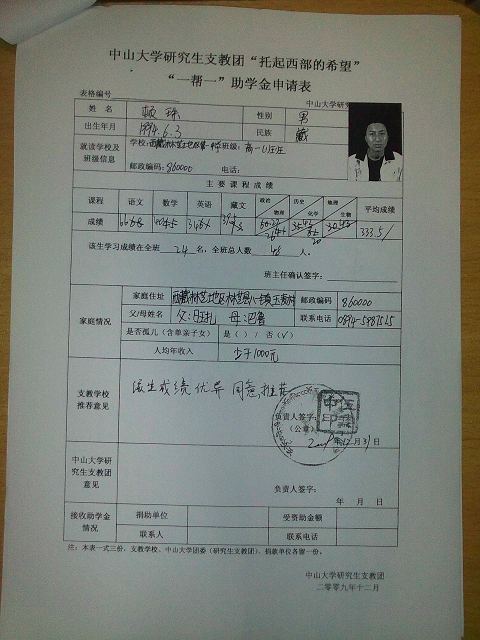 中山大学研究生支教团“托起西部的希望”
“一帮一”助学金申请表
表格编号
中山大学研究
姓 名 顿珠 性别 男
出生年月 1994.6.3 民族 藏
就读学校及班级信息 学校: 西藏林芝地区第一中学 班级: 高一(1)
邮政编码: 860000 电话:
主 要 课 程 成 绩
课程 语文 数学 英语 藏文 政治 物理 历史 化学 地理 生物 平均成绩
成绩 333.5/
该生学习成绩在全班 24 名, 全班总人数 48 人。
班主任确认签字:
家庭情况
家庭住址 西藏林芝地区林芝县八一镇 邮政编码 860000
父/母姓名 父: 母:巴鲁 联系电话 0894-5887525
是否孤儿(含单亲子女) 是( ) / 否(√)
人均年收入 少于1000元
支教学校推荐意见
该生成绩优异 同意推荐
负责人签字:
(公章)
年12月31日
中山大学研究生支教团意见
负责人签字:
年 月 日
接收助学金情况
捐助单位 受资助金额
联系人 联系电话
注: 本表一式三份, 支教学校、中山大学团委(研究生支教团)、捐款单位各留一份。
中山大学研究生支教团
二零零九年十二月